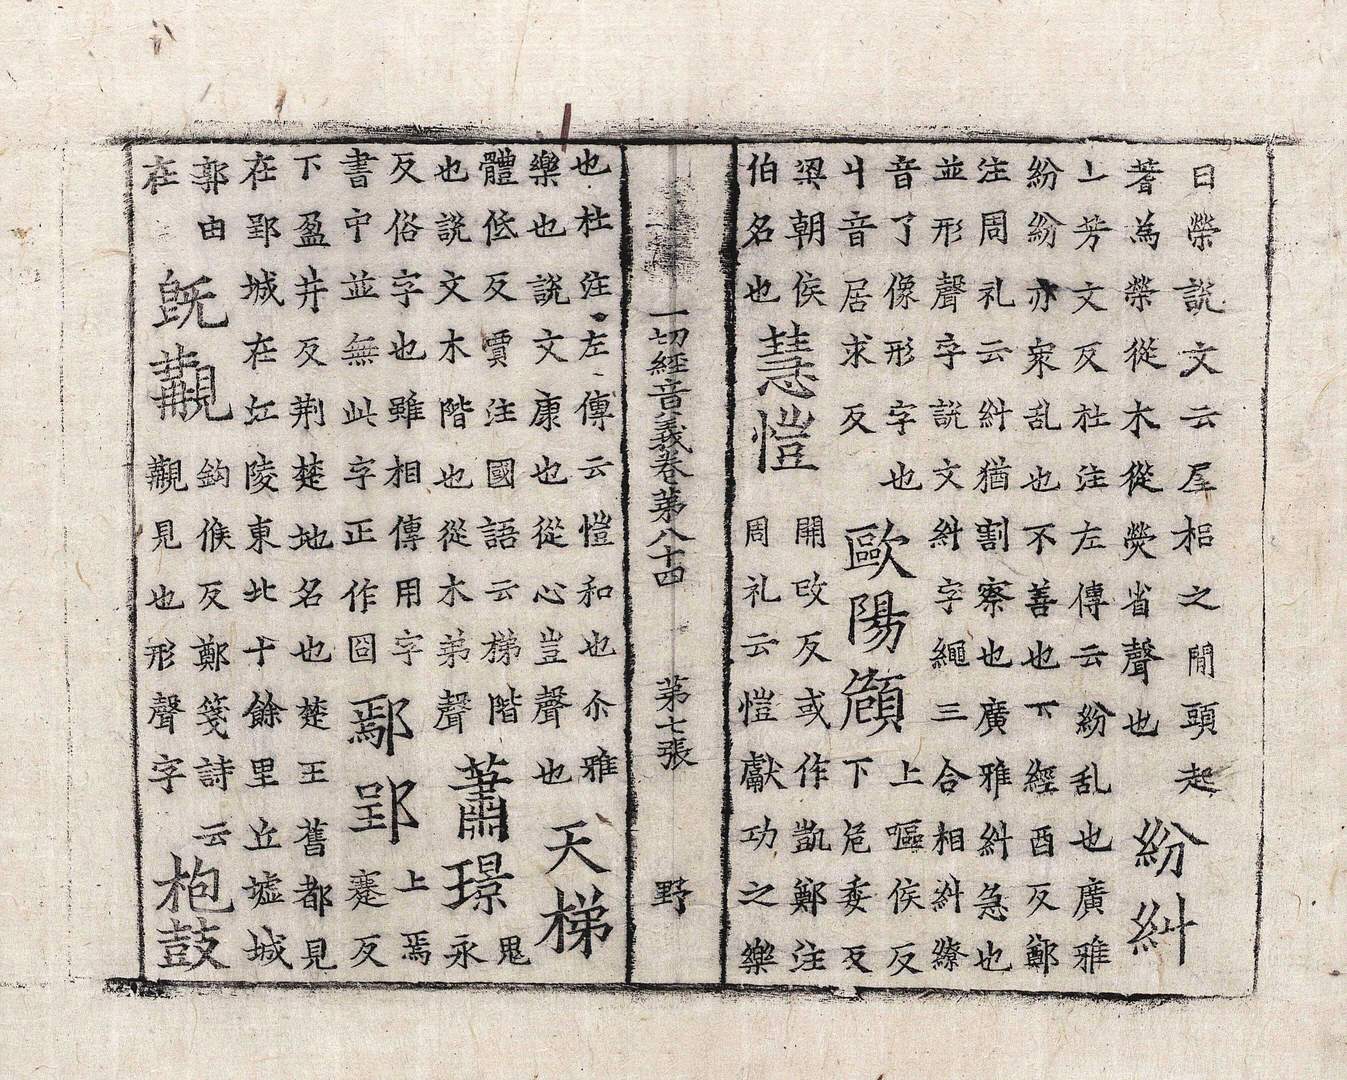 曰榮説文云屋梠之閒頭起
著為榮從木從熒省聲也
紛糾
上芳文反杜注左傳云紛乱也廣雅
紛紛亦衆乱也不善也下經酉反鄭
注周礼云糾猶割察也廣雅糾急也
並形聲字説文糾字繩三合相糾繚
音了像形字也
丩音居求反
歐陽頠
上嘔侯反
下危委反
梁朝侯
伯名也
慧愷
開改反或作凱鄭注
周礼云愷獻功之樂
一切經音義卷第八十四 第七張 野
也杜注左傳云愷和也尒雅
樂也説文康也從心豈聲也
天梯
體低反賈注國語云梯階
也説文木階也從木弟聲
蕭璟
鬼
永
反俗字也雖相傳用字
書中並無此字正作囧
鄢郢
上焉
蹇反
下盈井反荆楚地名也楚王舊都見
在郢城在江陵東北十餘里丘墟城
郭由
在
旣覯
鈎候反鄭箋詩云
覯見也形聲字
枹鼓